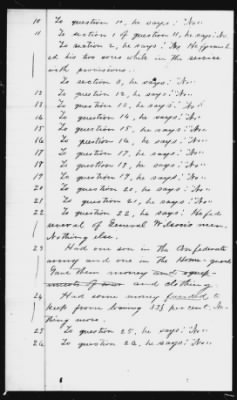 10 To question 10, he says: "No"
11 To section 1 of question 11, he says: No
To section 2, he says: No He furnish
ed his two sons while in the service
with provisions.
To section 3, he says: "No"
12 To question 12, he says: "No"
13 To question 13, he says: "No"
14 To question 14, he says: "No"
15 To question 15, he says: "No"
16 To question 16, he says: "No"
17 To question 17, he says: "No"
18 To question 18, he says: "No"
19 To question 19, he says: "No"
20 To question 20, he says: "No"
21 To question 21, he says: "No"
22 To question 22, he says: "He fed
several of General men.
Nothing else.
23 Had one son in the Confederate
army and one in the Home-guard
Gave them money and equip-
ments of war and clothing
24 Had some money funded to
keep from losing 33⅓ per cent. No
thing more.
25 To question 25, he says: "No"
26 To question 26, he says: "No"